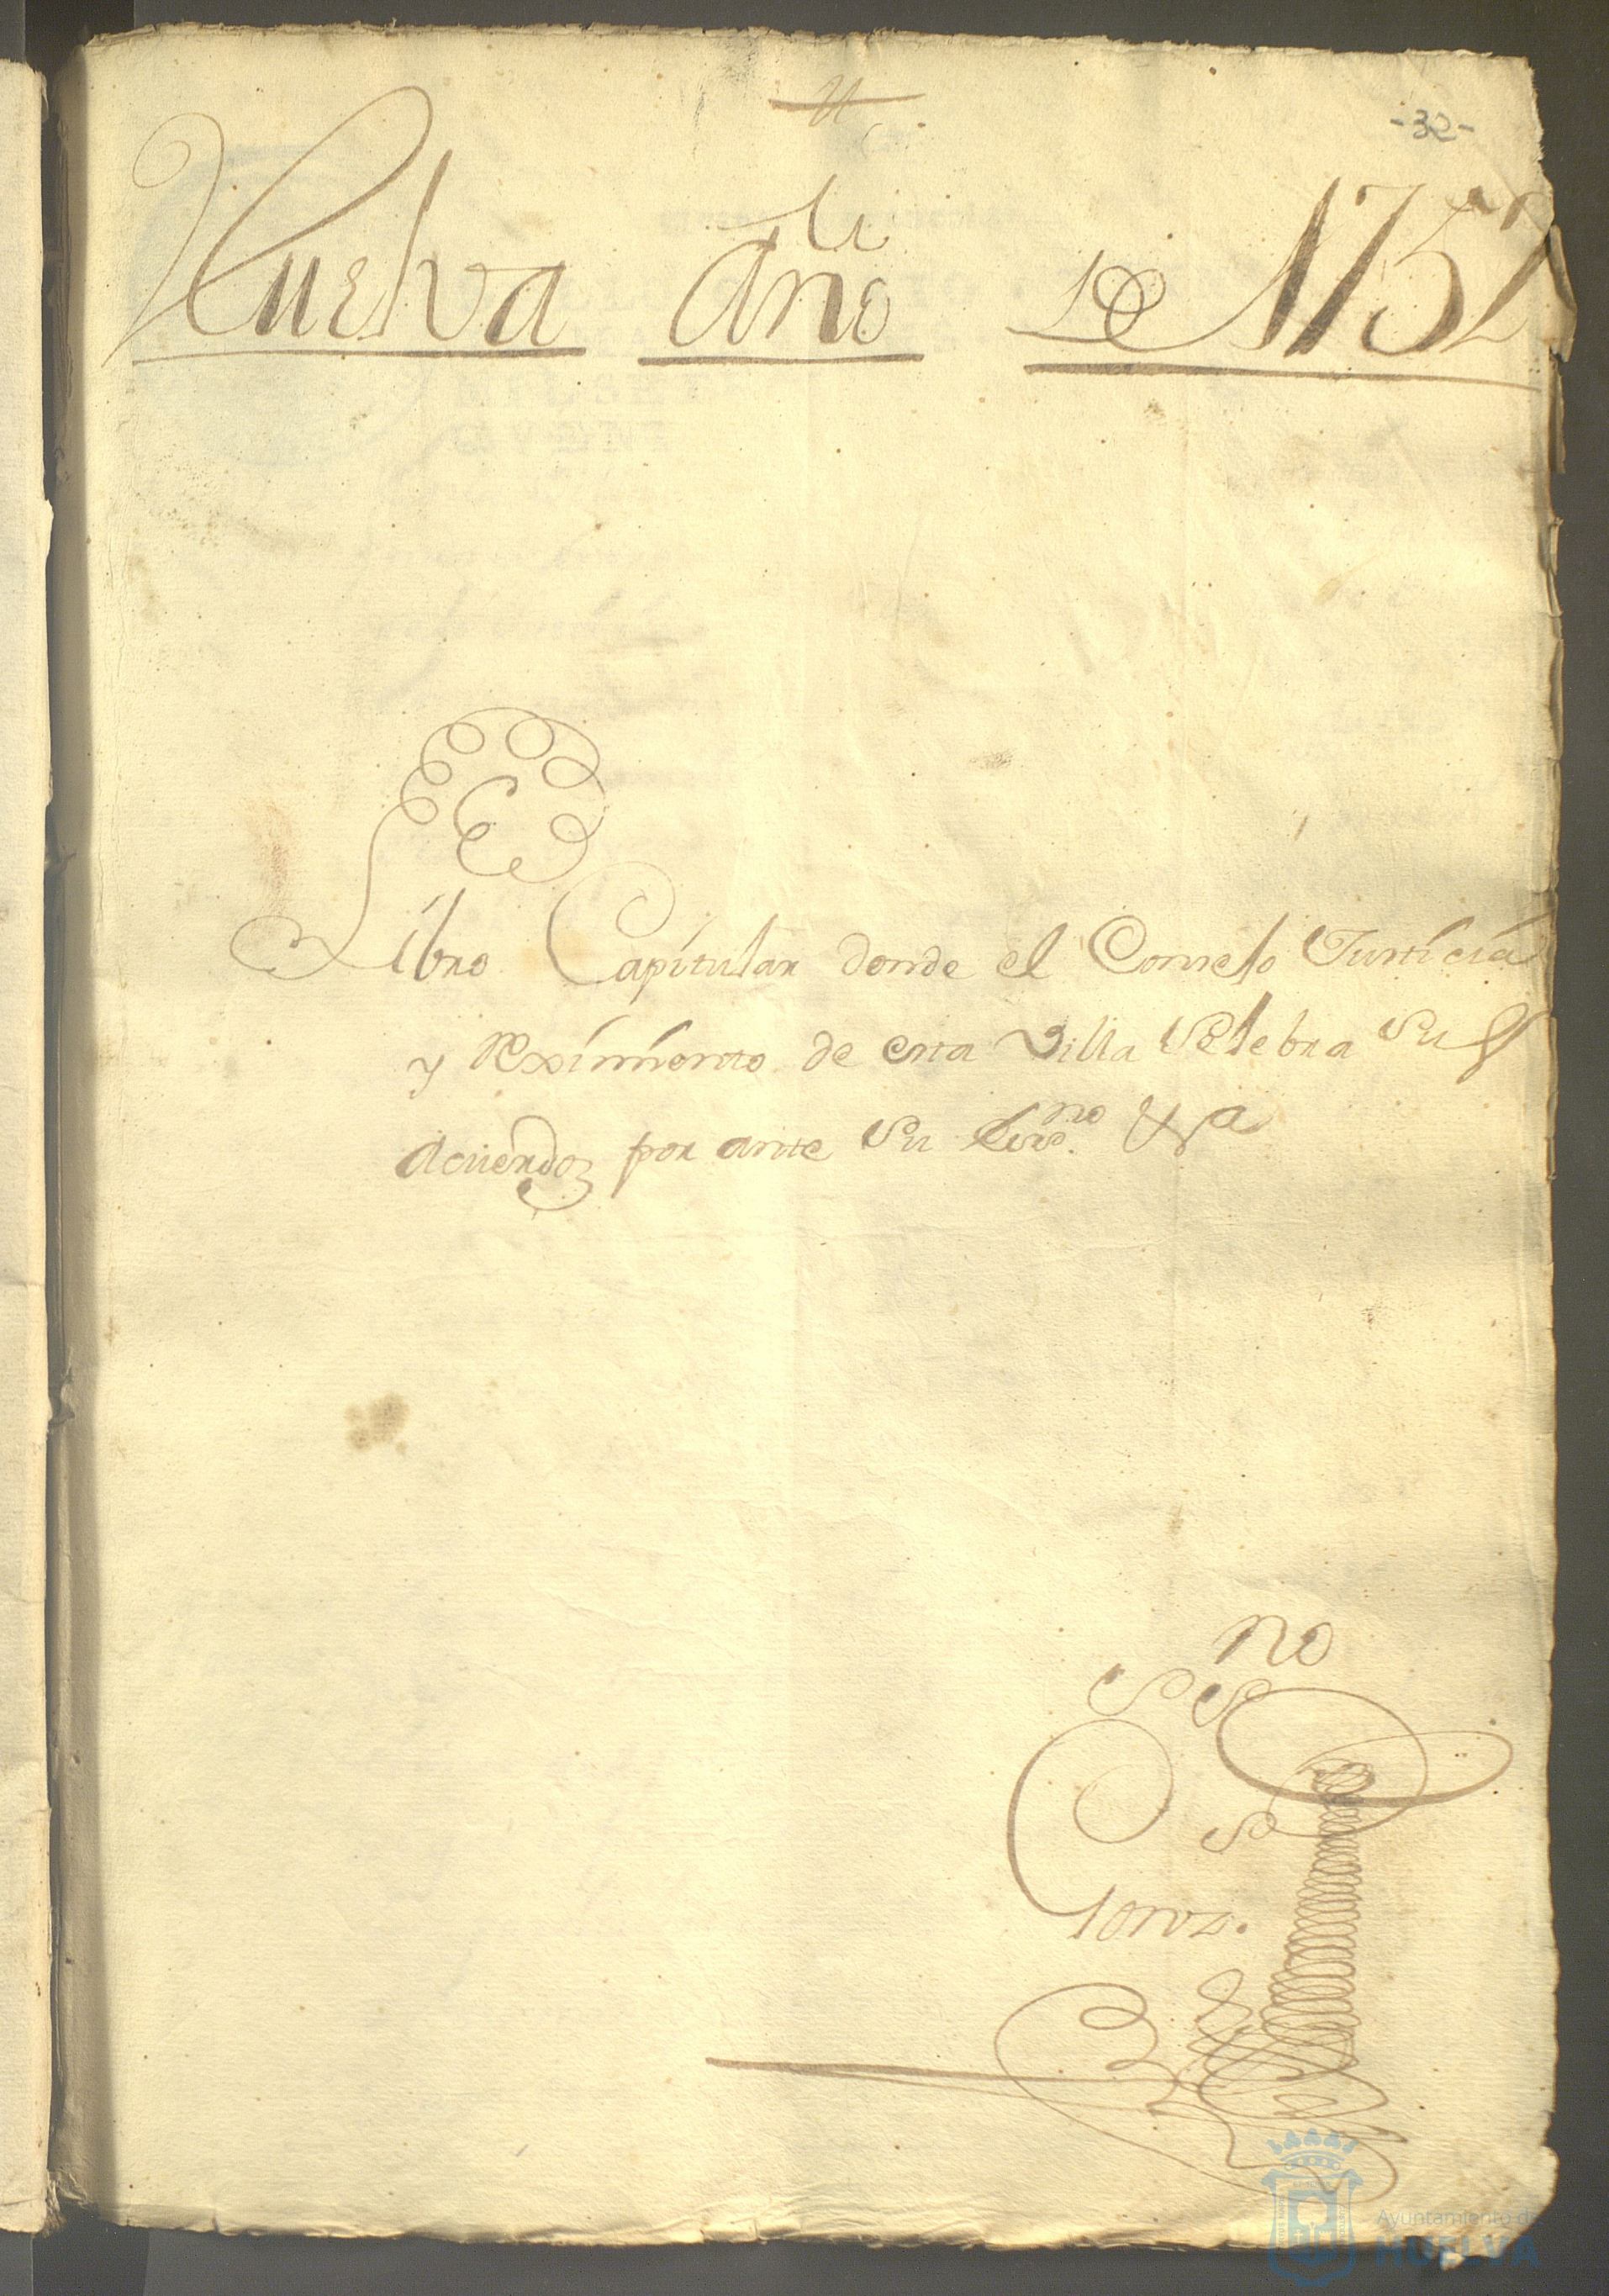 -32-
Huelva Año De 1752
Libro Capitular donde el Consejo Justicia
y Reximiento de esta Villa Selebra Sus
Acuerdos por ante Su Ess.no &a
no
Ayuntamiento de
HUELVA